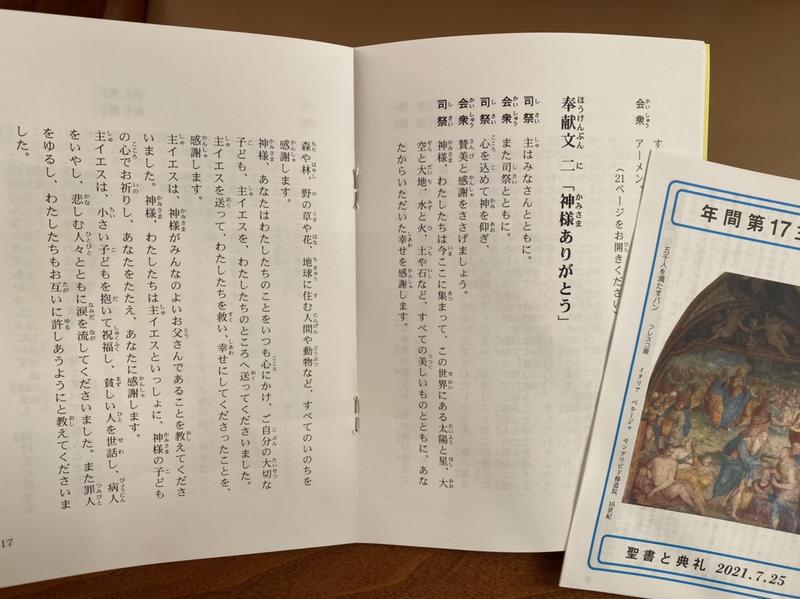 会衆 アーメン。
(21ページをお開きください)
奉献文 二 「神様ありがとう」
司祭 主はみなさんとともに。
会衆 また司祭とともに。
司祭 心を込めて神を仰ぎ、
会衆 賛美と感謝をささげましょう。
司祭 神様、わたしたちは今ここに集まって、この世界にある太陽と星、大
空と大地、水と火、土や石など、すべての美しいものとともに、あな
たからいただいた幸せを感謝します。
森や林、野の草や花、地球に住む人間や動物など、すべてのいのちを
感謝します。
神様、あなたはわたしたちのことをいつも心にかけ、ご自分の大切な
子ども、主イエスを、わたしたちのところへ送ってくださいました。
主イエスを送って、わたしたちを救い、幸せにしてくださったことを、
感謝します。
主イエスは、神様がみんなのよいお父さんであることを教えてくださ
いました。神様、わたしたちは主イエスといっしょに、神様の子ども
の心でお祈りし、あなたをたたえ、あなたに感謝します。
主イエスは、小さい子どもを抱いて祝福し、貧しい人を世話し、病人
をいやし、悲しむ人々とともに涙を流してくださいました。また罪人
をゆるし、わたしたちもお互いに許しあうようにと教えてくださいま
した。
17
年間第17主
五千人を満たすパン フレスコ画 イタリア ペルージャ モンテリピド修道院 16世紀
聖書と典礼 2021.7.25